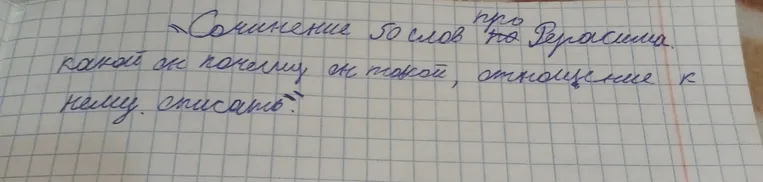 "Сочинение 50 слов про по Герасима.
какой он почему он такой, отношение к
нему. описать".